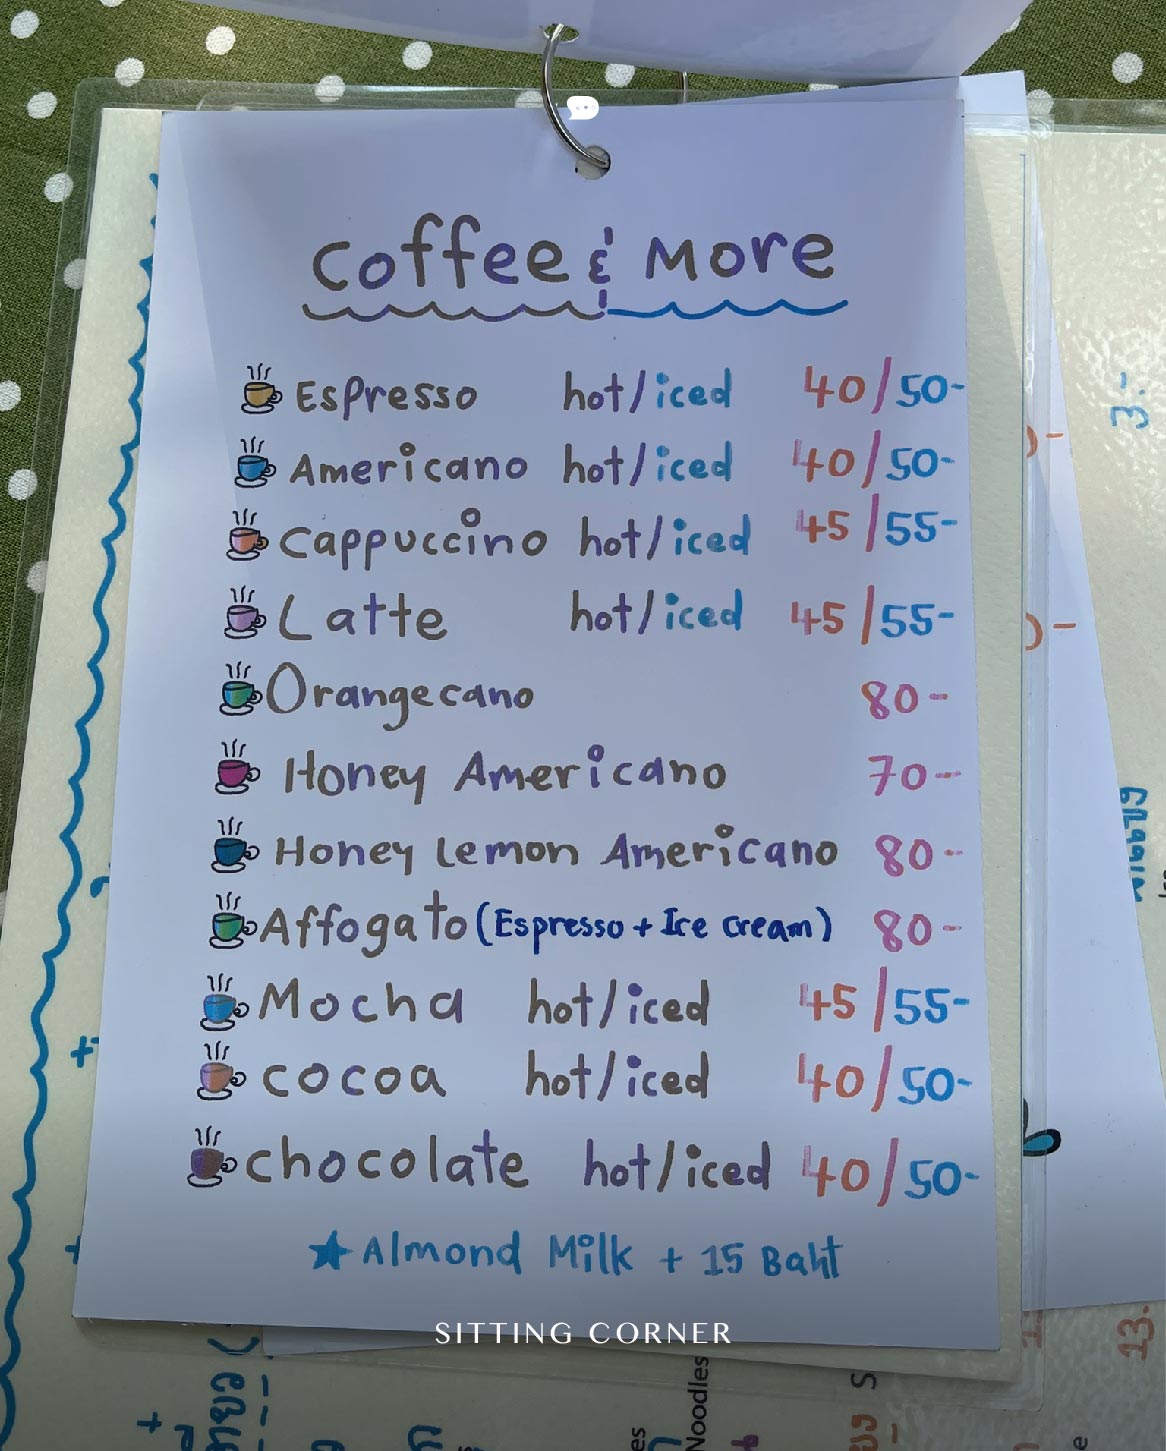 Coffee & More
Espresso hot/iced 40/50-
Americano hot/iced 40/50-
Cappuccino hot/iced 45/55-
Latte hot/iced 45/55-
Orangecano 80-
Honey Americano 70-
Honey Lemon Americano 80-
Affogato (Espresso + Ice cream) 80-
Mocha hot/iced 45/55-
cocoa hot/iced 40/50-
chocolate hot/iced 40/50-
★ Almond Milk + 15 Baht
SITTING CORNER
3.-
13.
Noodles